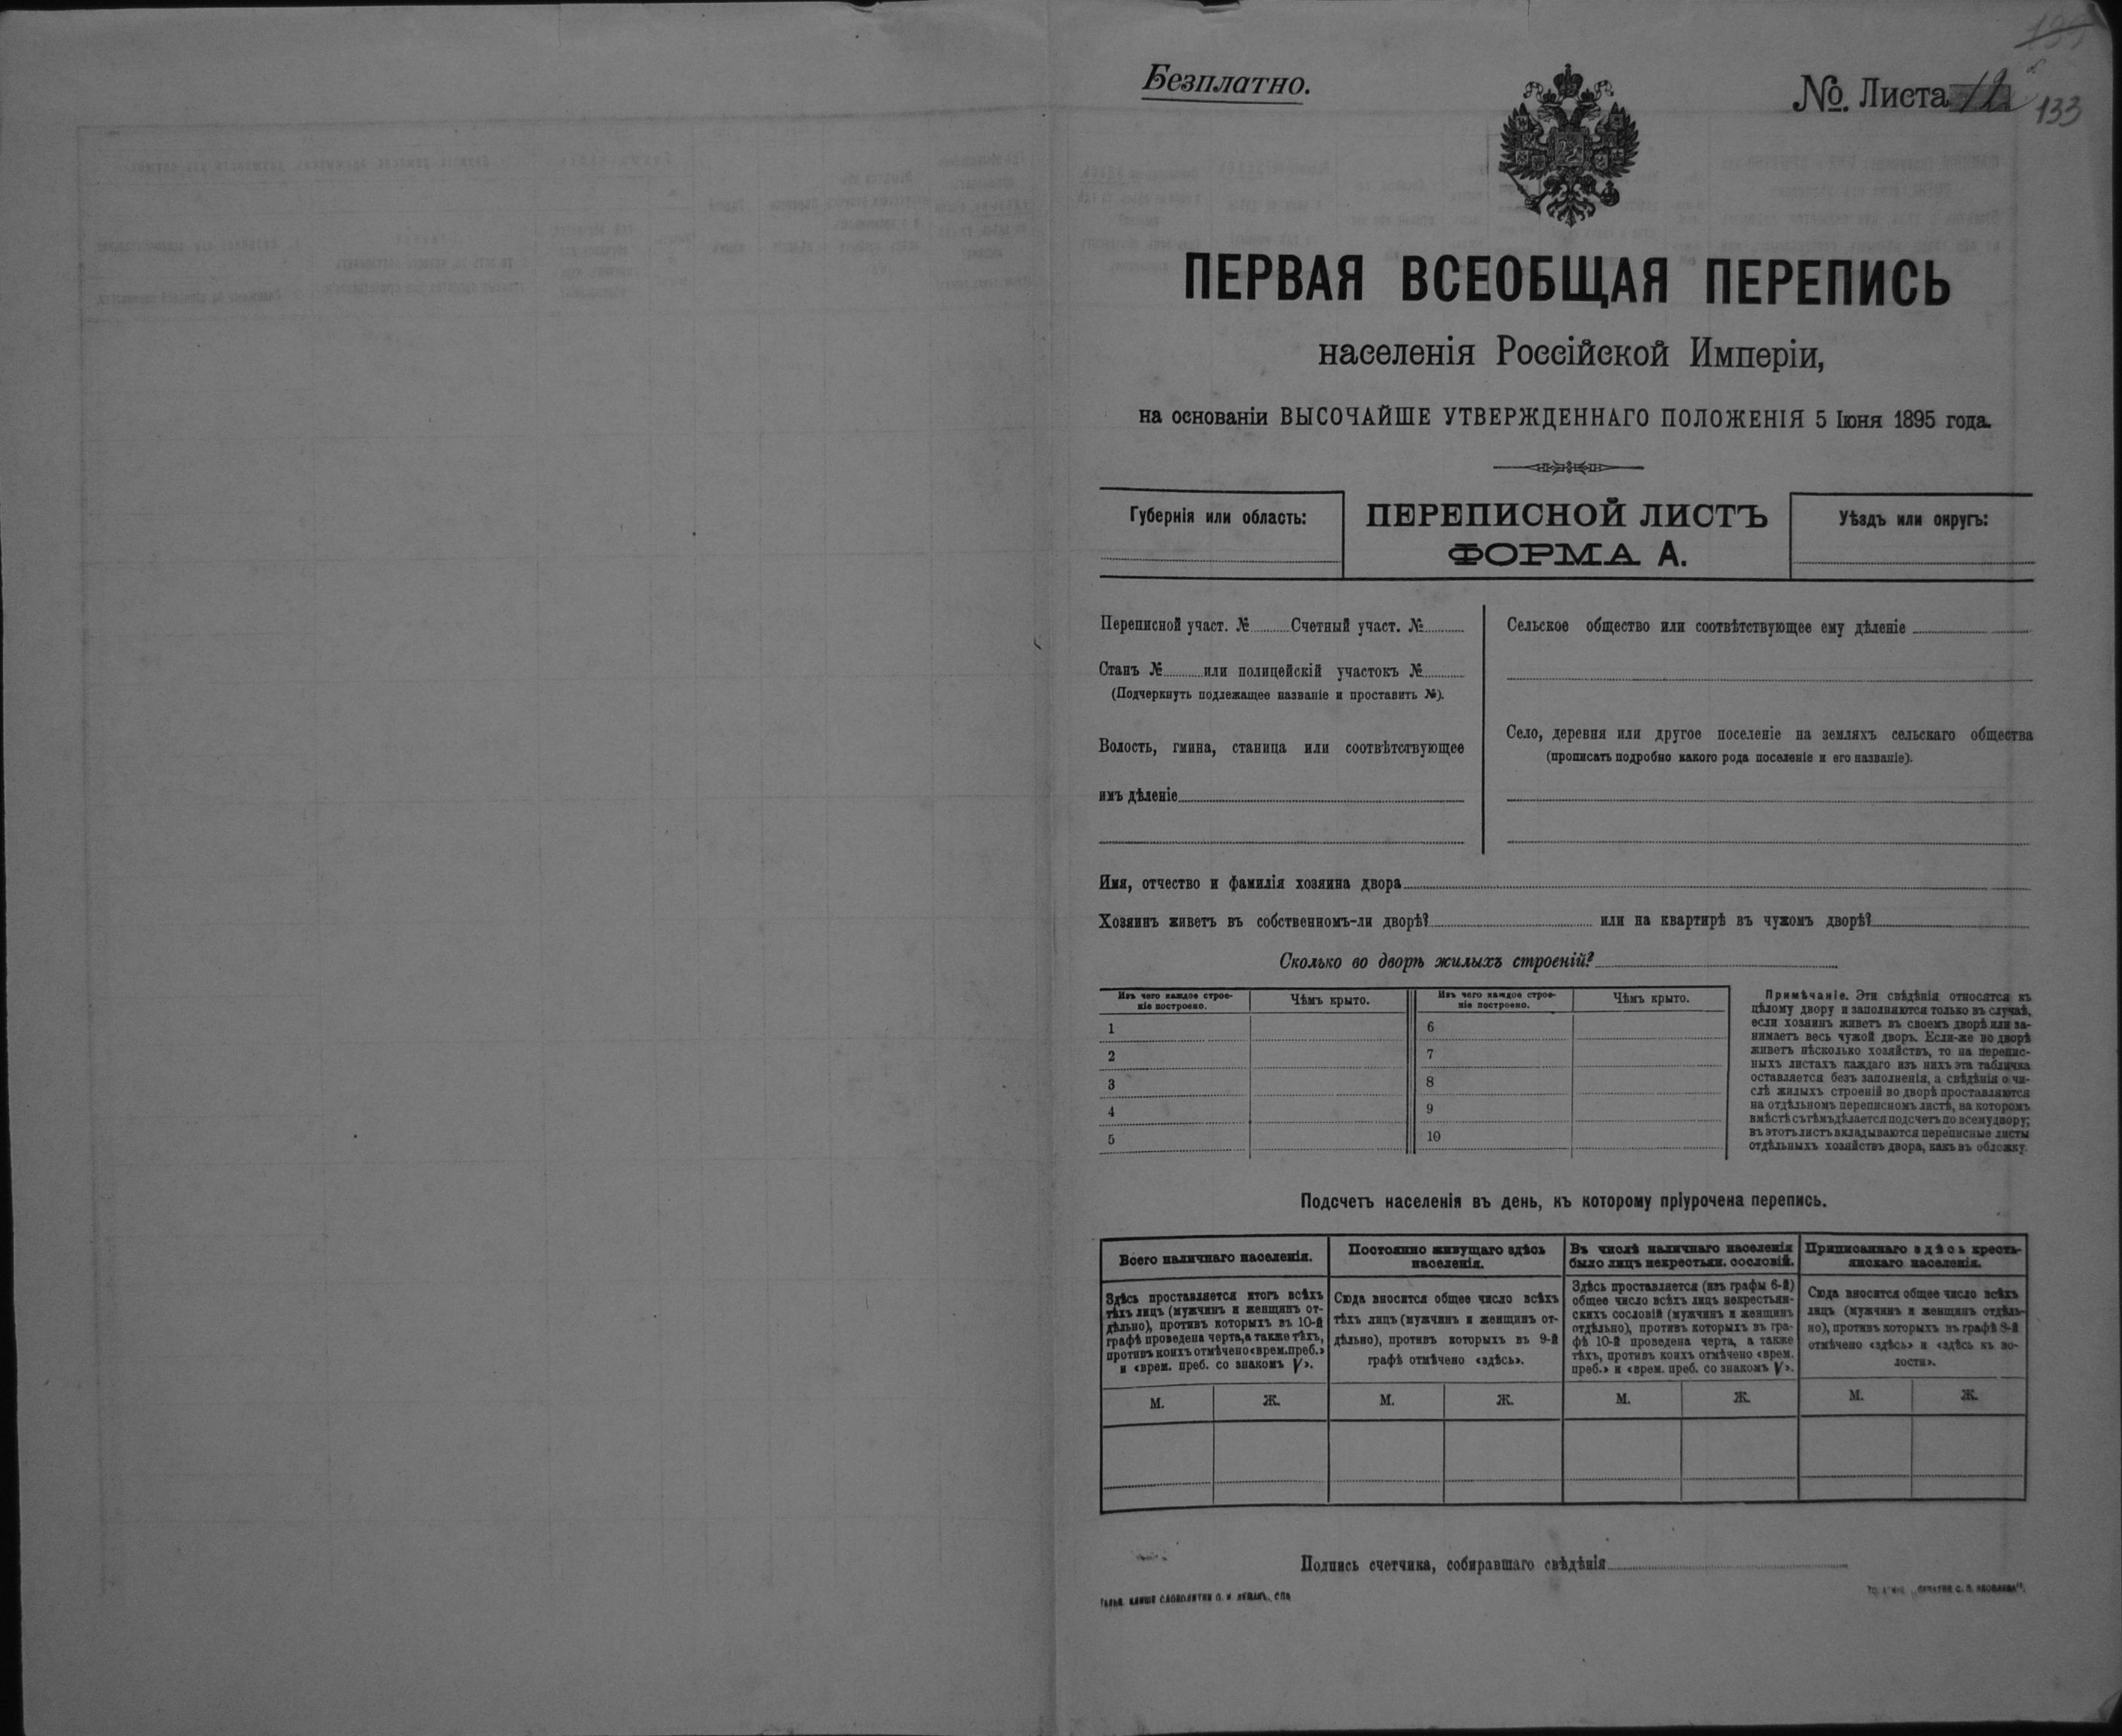 Безплатно.
№. Листа 12
133
ПЕРВАЯ ВСЕОБЩАЯ ПЕРЕПИСЬ
населенія Россійской Имперіи,
на основаніи ВЫСОЧАЙШЕ УТВЕРЖДЕННАГО ПОЛОЖЕНІЯ 5 Іюня 1895 года.
Губернія или область:
ПЕРЕПИСНОЙ ЛИСТЪ
ФОРМА А.
Уѣздъ или округъ:
Переписной участ. № Счетный участ. №
Станъ № или полицейскій участокъ №
(Подчеркнуть подлежащее названіе и проставить №).
Волость, гмина, станица или соотвѣтствующее
имъ дѣленіе
Сельское общество или соотвѣтствующее ему дѣленіе
Село, деревня или другое поселеніе на земляхъ сельскаго общества
(прописать подробно какого рода поселеніе и его названіе).
Имя, отчество и фамилія хозяина двора
Хозяинъ живетъ въ собственномъ-ли дворѣ? или на квартирѣ въ чужомъ дворѣ?
Сколько во дворѣ жилыхъ строеній?
Изъ чего каждое строе-
ніе построено.
Чѣмъ крыто.
Изъ чего каждое строе-
ніе построено.
Чѣмъ крыто.
1
2
3
4
5
6
7
8
9
10
Примѣчаніе. Эти свѣдѣнія относятся къ
цѣлому двору и заполняются только въ случаѣ,
если хозяинъ живетъ въ своемъ дворѣ или за-
нимаетъ весь чужой дворъ. Если-же во дворѣ
живетъ нѣсколько хозяйствъ, то на перепис-
ныхъ листахъ каждаго изъ нихъ эта табличка
оставляется безъ заполненія, а свѣдѣнія о чи-
слѣ жилыхъ строеній во дворѣ проставляются
на отдѣльномъ переписномъ листѣ, на которомъ
вмѣстѣ съ тѣмъ дѣлается подсчетъ по всему двору;
въ этотъ листъ вкладываются переписные листы
отдѣльныхъ хозяйствъ двора, какъ въ обложку.
Подсчетъ населенія въ день, къ которому пріурочена перепись.
Всего наличнаго населенія.
Здѣсь проставляется итогъ всѣхъ
тѣхъ лицъ (мужчинъ и женщинъ от-
дѣльно), противъ которыхъ въ 10-й
графѣ проведена черта, а также тѣхъ,
противъ коихъ отмѣчено «врем. преб.»
и «врем. преб. со знакомъ V».
Постоянно живущаго здѣсь
населенія.
Сюда вносится общее число всѣхъ
тѣхъ лицъ (мужчинъ и женщинъ от-
дѣльно), противъ которыхъ въ 9-й
графѣ отмѣчено «здѣсь».
Въ числѣ наличнаго населенія
было лицъ некрестьян. сословій.
Здѣсь проставляется (изъ графы 6-й)
общее число всѣхъ лицъ некрестьян-
скихъ сословій (мужчинъ и женщинъ
отдѣльно), противъ которыхъ въ гра-
фѣ 10-й проведена черта, а также
тѣхъ, противъ коихъ отмѣчено «врем.
преб.» и «врем. преб. со знакомъ V».
Приписаннаго здѣсь кресть-
янскаго населенія.
Сюда вносится общее число всѣхъ
лицъ (мужчинъ и женщинъ отдѣль-
но), противъ которыхъ въ графѣ 8-й
отмѣчено «здѣсь» и «здѣсь къ во-
лости».
М. Ж. М. Ж. М. Ж. М. Ж.
Подпись счетчика, собиравшаго свѣдѣнія